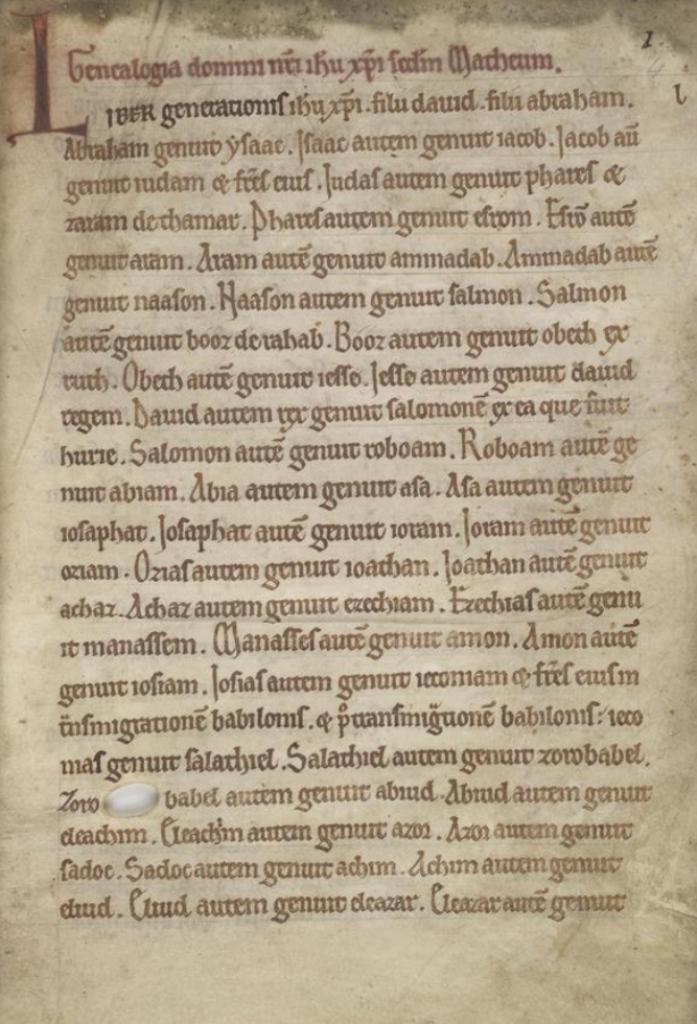 1
Genealogia domini nr̄i ihu xp̄i scdm Matheum.
l
LIBER generationis ihu xp̄i. filii dauid. filii abraham.
Abraham genuit ysaac. Isaac autem genuit iacob. Iacob aū
genuit iudam & fr̄es eius. Iudas autem genuit phares &
zaram de thamar. Phares autem genuit esrom. Esrō autē
genuit aram. Aram autē genuit aminadab. Aminadab autē
genuit naason. Naason autem genuit salmon. Salmon
autē genuit booz de rahab. Booz autem genuit obeth ex
ruth. Obeth autē genuit iesse. Iesse autem genuit dauid
regem. Dauid autem rex genuit salomonē ex ea que fuit
hurie. Salomon autē genuit roboam. Roboam autē ge
nuit abiam. Abia autem genuit asa. Asa autem genuit
iosaphat. Iosaphat autē genuit ioram. Ioram autē genuit
oziam. Ozias autem genuit ioathan. Ioathan autē genuit
achaz. Achaz autem genuit ezechiam. Ezechias autē genu
it manassem. Manasses autē genuit amon. Amon autē
genuit iosiam. Iosias autem genuit ieconiam & fr̄es eius in
t̄nsmigrationē babilonis. & p̊ transmig̃tionē babilonis: ieco
nias genuit salathiel. Salathiel autem genuit zorobabel.
Zoro babel autem genuit abiud. Abiud autem genuit
eleachim. Eleachim autem genuit azor. Azor autem genuit
sadoc. Sadoc autem genuit achim. Achim autem genuit
eliud. Eliud autem genuit eleazar. Eleazar autē genuit